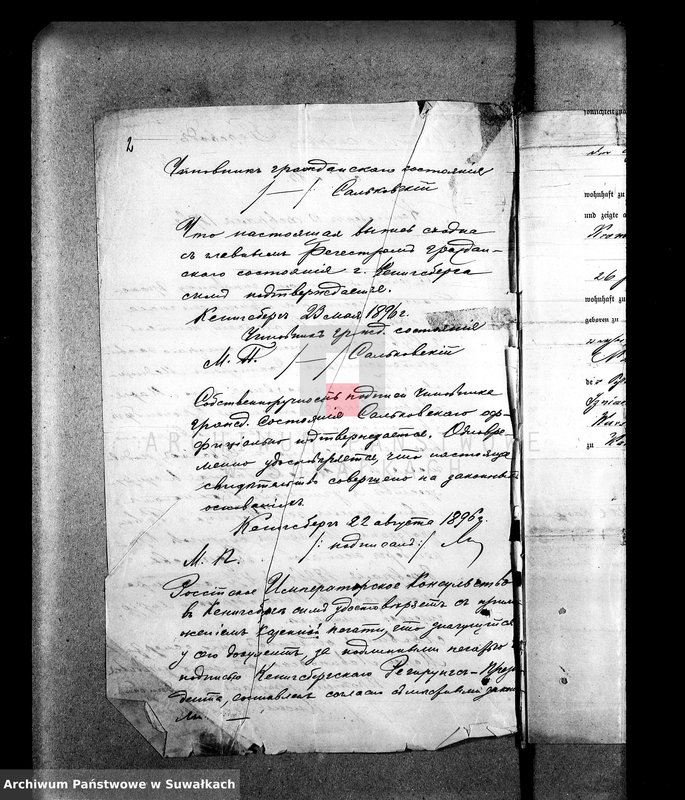 2
Чиновникъ гражданскаго состоянія
/—/: Сальковскій
Что настоящая выпись сходна
съ главнымъ Регестромъ граждан-
скаго состоянія г. Кенигсберга
симъ подтверждаете.
Кенигсбергъ 23 мая 1896 г.
Чиновникъ гражд. состоянія
М. П. /—/ Сальковскій
Собственноручность подписи Чиновника
гражд. состоянія Сальковскаго оф-
фиціально подтверждается. Одновре-
менно удостовѣряется, что настоящее
свидѣтельство совершено на законномъ
основаніи.
Кенигсбергъ 22 августа 1896 г.
М. П. /: подписалъ :/
Россійское Императорское Консульство
въ Кенигсбергѣ симъ удостовѣряетъ съ прило-
женіемъ казенной печати, что
у сего документъ, за подлинными печатью и
подписью Кенигсбергскаго Регирунгсъ-Прези-
дента, составленъ согласно съ мѣстными зако-
wohnhaft zu
und zeigte a
26
wohnhaft zu
geboren zu
zu
ARCHIWUM PAŃSTWOWE
W SUWAŁKACH
Archiwum Państwowe w Suwałkach